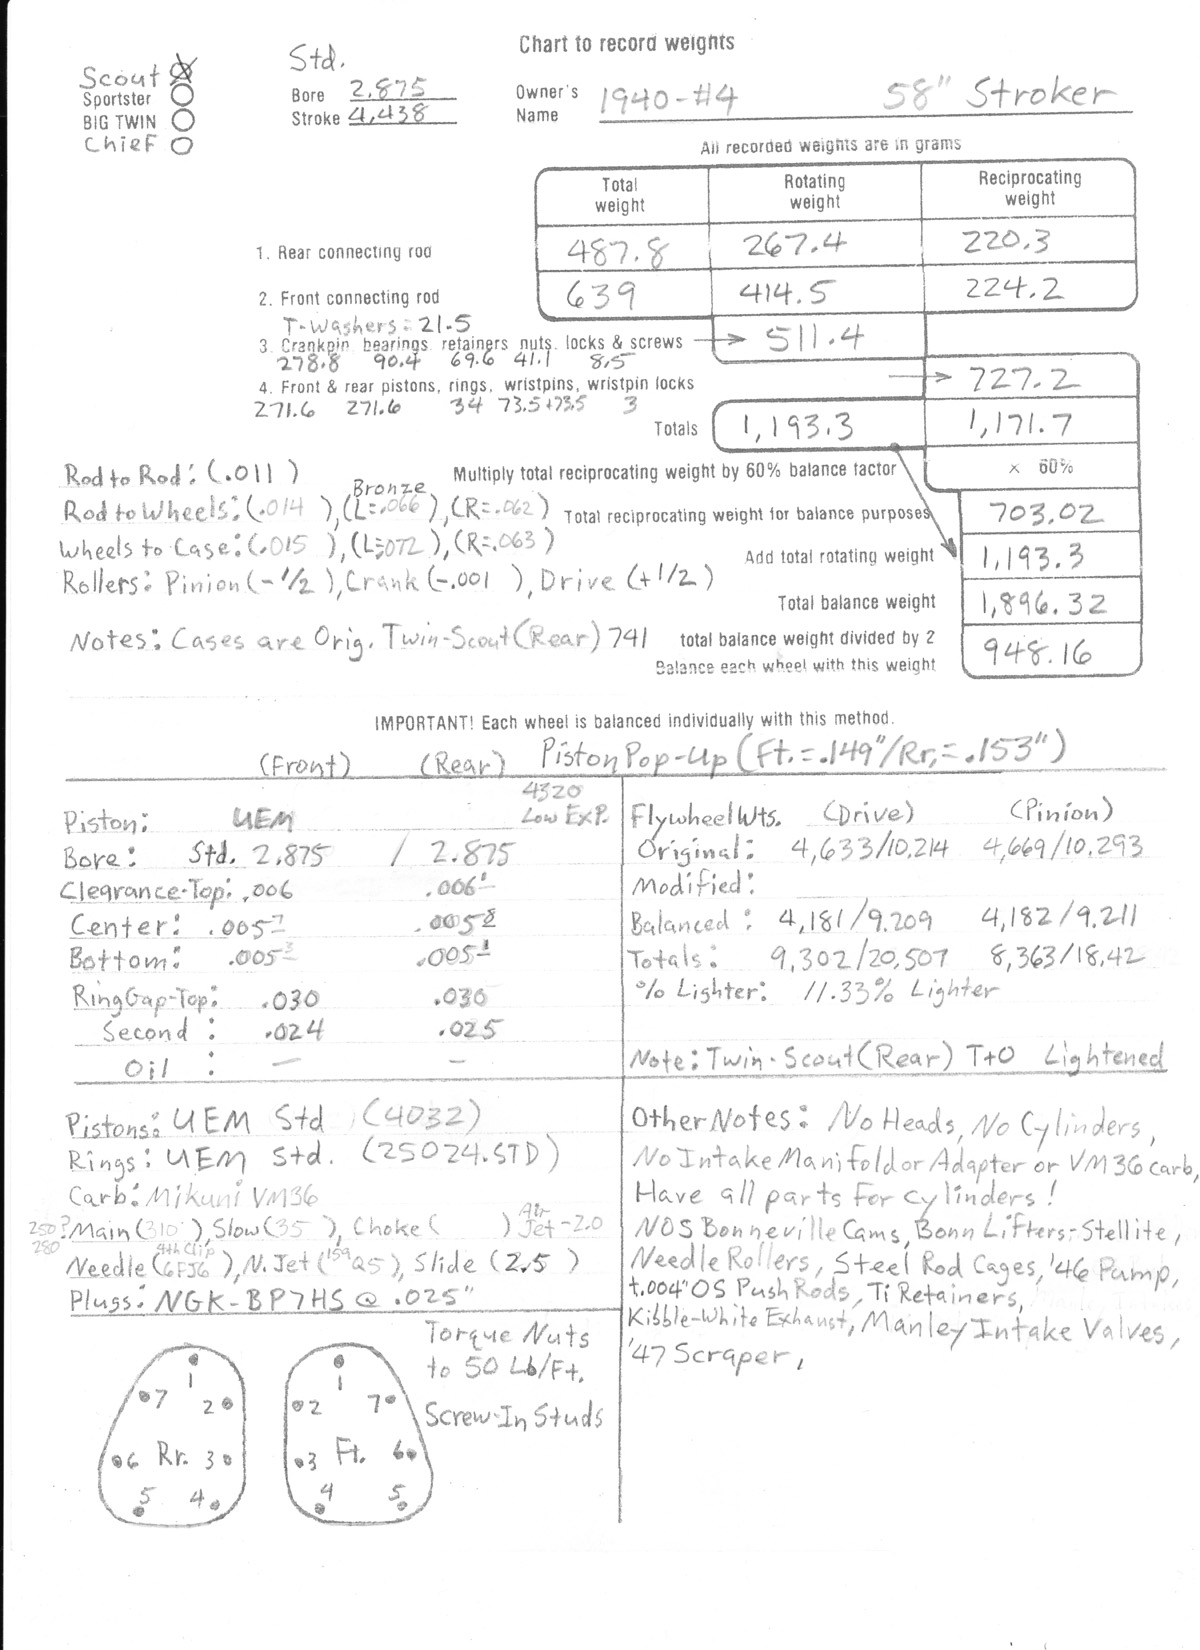 Chart to record weights
Scout
Sportster
BIG TWIN
Chief
Std.
Bore 2.875
Stroke 4,438
Owner's Name 1940-#4 58" Stroker
All recorded weights are in grams
Total weight Rotating weight Reciprocating weight
1. Rear connecting rod 487.8 267.4 220.3
2. Front connecting rod 639 414.5 224.2
T-Washers = 21.5
3. Crankpin bearings retainers nuts. locks & screws 511.4
278.8 90.4 69.6 41.1 8.5
4. Front & rear pistons, rings, wristpins, wristpin locks 727.2
271.6 271.6 34 73.5+73.5 3
Totals 1,193.3 1,171.7
Rod to Rod: (.011 )
Multiply total reciprocating weight by 60% balance factor x 60%
Bronze
Rod to Wheels: (.014 ), (L=.066), (R=.062)
Total reciprocating weight for balance purposes 703.02
Wheels to Case: (.015 ), (L=.072), (R=.063)
Add total rotating weight 1,193.3
Rollers: Pinion (-1/2 ), Crank (-.001 ), Drive (+1/2)
Total balance weight 1,896.32
Notes: Cases are Orig. Twin-Scout (Rear) 741
total balance weight divided by 2
Balance each wheel with this weight 948.16
IMPORTANT! Each wheel is balanced individually with this method.
(Front) (Rear) Piston Pop-Up (Ft. = .149"/Rr. = .153")
4320
Piston: UEM Low Exp.
Bore: Std. 2.875 / 2.875
Clearance-Top: .006 .006¹
Center: .005⁷ .005⁸
Bottom: .005³ .005¹
Ring Gap-Top: .030 .030
Second : .024 .025
Oil : — —
Flywheel Wts. (Drive) (Pinion)
Original: 4,633/10.214 4,669/10.293
Modified:
Balanced: 4,181/9.209 4,182/9.211
Totals: 9,302/20,507 8,363/18,42
% Lighter: 11.33% Lighter
Note: Twin-Scout (Rear) T+O Lightened
Pistons: UEM Std (4032)
Rings: UEM Std. (25024.STD)
Carb: Mikuni VM36
250? Main (310 ), Slow (35 ), Choke ( ) Air Jet-2.0
280
4th Clip
Needle (6FJ6 ), N. Jet (159 Q5), Slide (2.5 )
Plugs: NGK-BP7HS @ .025"
Other Notes: No Heads, No Cylinders,
No Intake Manifold or Adapter or VM36 carb,
Have all parts for cylinders!
NOS Bonneville Cams, Bonn Lifters-Stellite,
Needle Rollers, Steel Rod Cages, '46 Pump,
+.004" OS Push Rods, Ti Retainers,
Kibble-White Exhaust, Manley Intake Valves,
'47 Scraper,
Torque Nuts
to 50 Lb/Ft.
Screw-In Studs
1 7 2 6 Rr. 3 5 4
1 2 7 3 Ft. 6 4 5